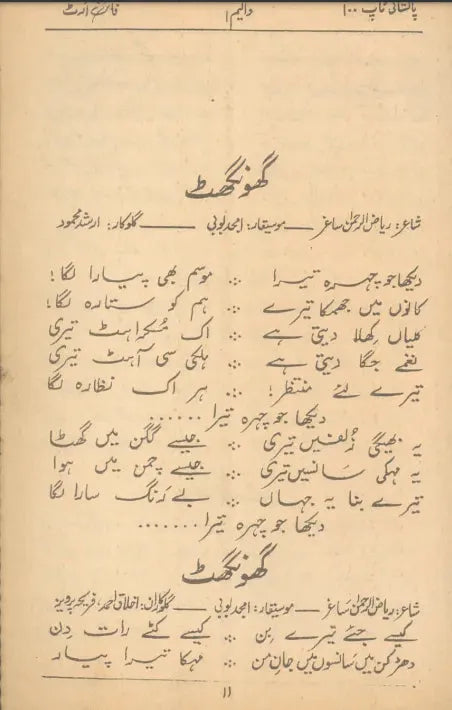 پاکستانی ٹاپ ۱۰۰ والیم ۱
گھونگھٹ
شاعر: ریاض الرحمٰن ساغر ــــ موسیقار: امجد بوبی ــــ گلوکار: ارشد محمود
دیکھا جو چہرہ تیرا ؞ موسم بھی پیارا لگا!
کانوں میں جھمکا تیرے ؞ ہم کو ستارہ لگا!
کلیاں کھلا دیتی ہے ؞ اک مُسکراہٹ تیری
نغمے جگا دیتی ہے ؞ ہلکی سی آہٹ تیری
تیرے لئے منتظر! ؞ ہر اک نظارہ لگا
دیکھا جو چہرہ تیرا ......
یہ بھیگی زُلفیں تیری ؞ جیسے گگن میں گھٹا
یہ مہکی سانسیں تیری ؞ جیسے چمن میں ہوا
تیرے بنا یہ جہاں ؞ بے رَنگ سارا لگا
دیکھا جو چہرہ تیرا .......
گھونگھٹ
شاعر: ریاض الرحمٰن ساغر ــــ موسیقار: امجد بوبی ــــ گلوکاران: اخلاق احمد، فریحہ پرویز
کیسے جئے تیرے بِن ؞ کیسے کٹے رات دِن
دھڑکن میں سانسوں میں جانِ من ؞ مہکا تیرا پیار
۱۱